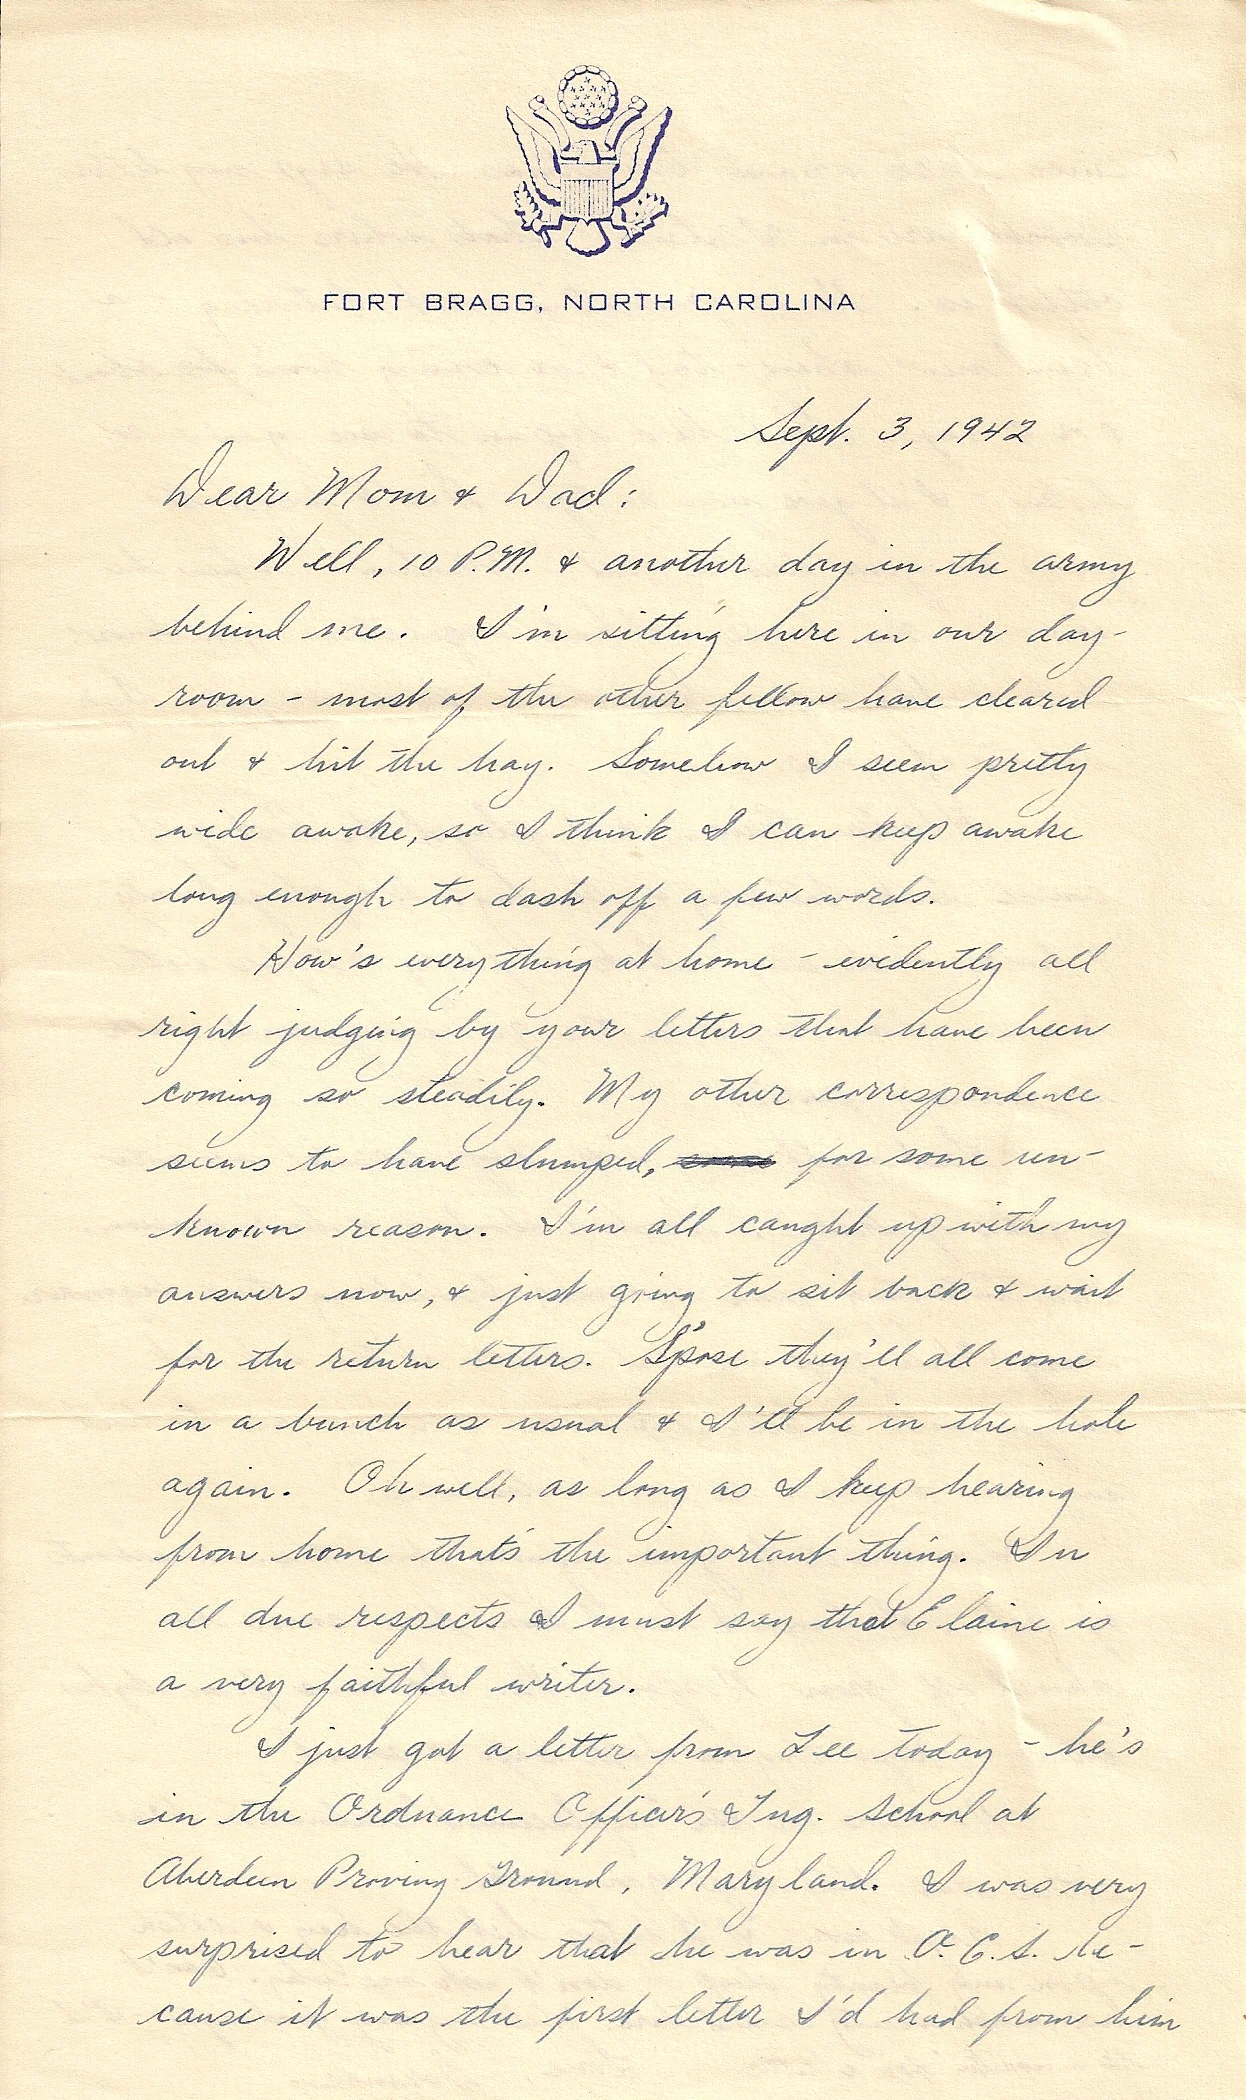 FORT BRAGG, NORTH CAROLINA
Sept. 3, 1942
Dear Mom & Dad:
Well, 10 P.M. & another day in the army
behind me. I'm sitting here in our day-
room - most of the other fellow have cleared
out & hit the hay. Somehow I seem pretty
wide awake, so I think I can keep awake
long enough to dash off a few words.
How's everything at home - evidently all
right judging by your letters that have been
coming so steadily. My other correspondence
seems to have slumped, for some un-
known reason. I'm all caught up with my
answers now, & just going to sit back & wait
for the return letters. S'pose they'll all come
in a bunch as usual & I'll be in the hole
again. Oh well, as long as I keep hearing
from home that's the important thing. In
all due respects I must say that Elaine is
a very faithful writer.
I just got a letter from Lee today - he's
in the Ordnance Officer's Tng. School at
Aberdeen Proving Ground, Maryland. I was very
surprised to hear that he was in O.C.S. be-
cause it was the first letter I'd had from him